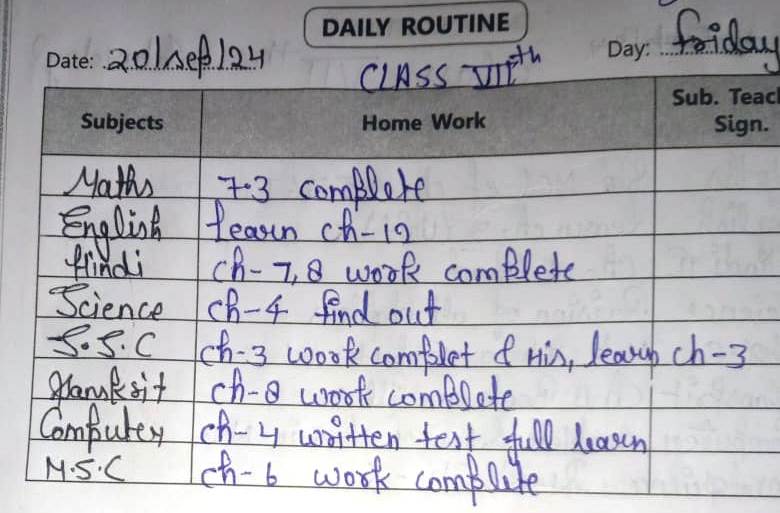 DAILY ROUTINE
Date: 20/sep/24 Day: friday
CLASS VIIth
Subjects Home Work Sub. Teac Sign.
Maths 7.3 complete
English learn ch-12
Hindi ch-7,8 work complete
Science ch-4 find out
S.S.C ch-3 work complet of His, learn ch-3
Sansksit ch-8 work complete
Computer ch-4 written test full learn
M.S.C ch-6 work complete